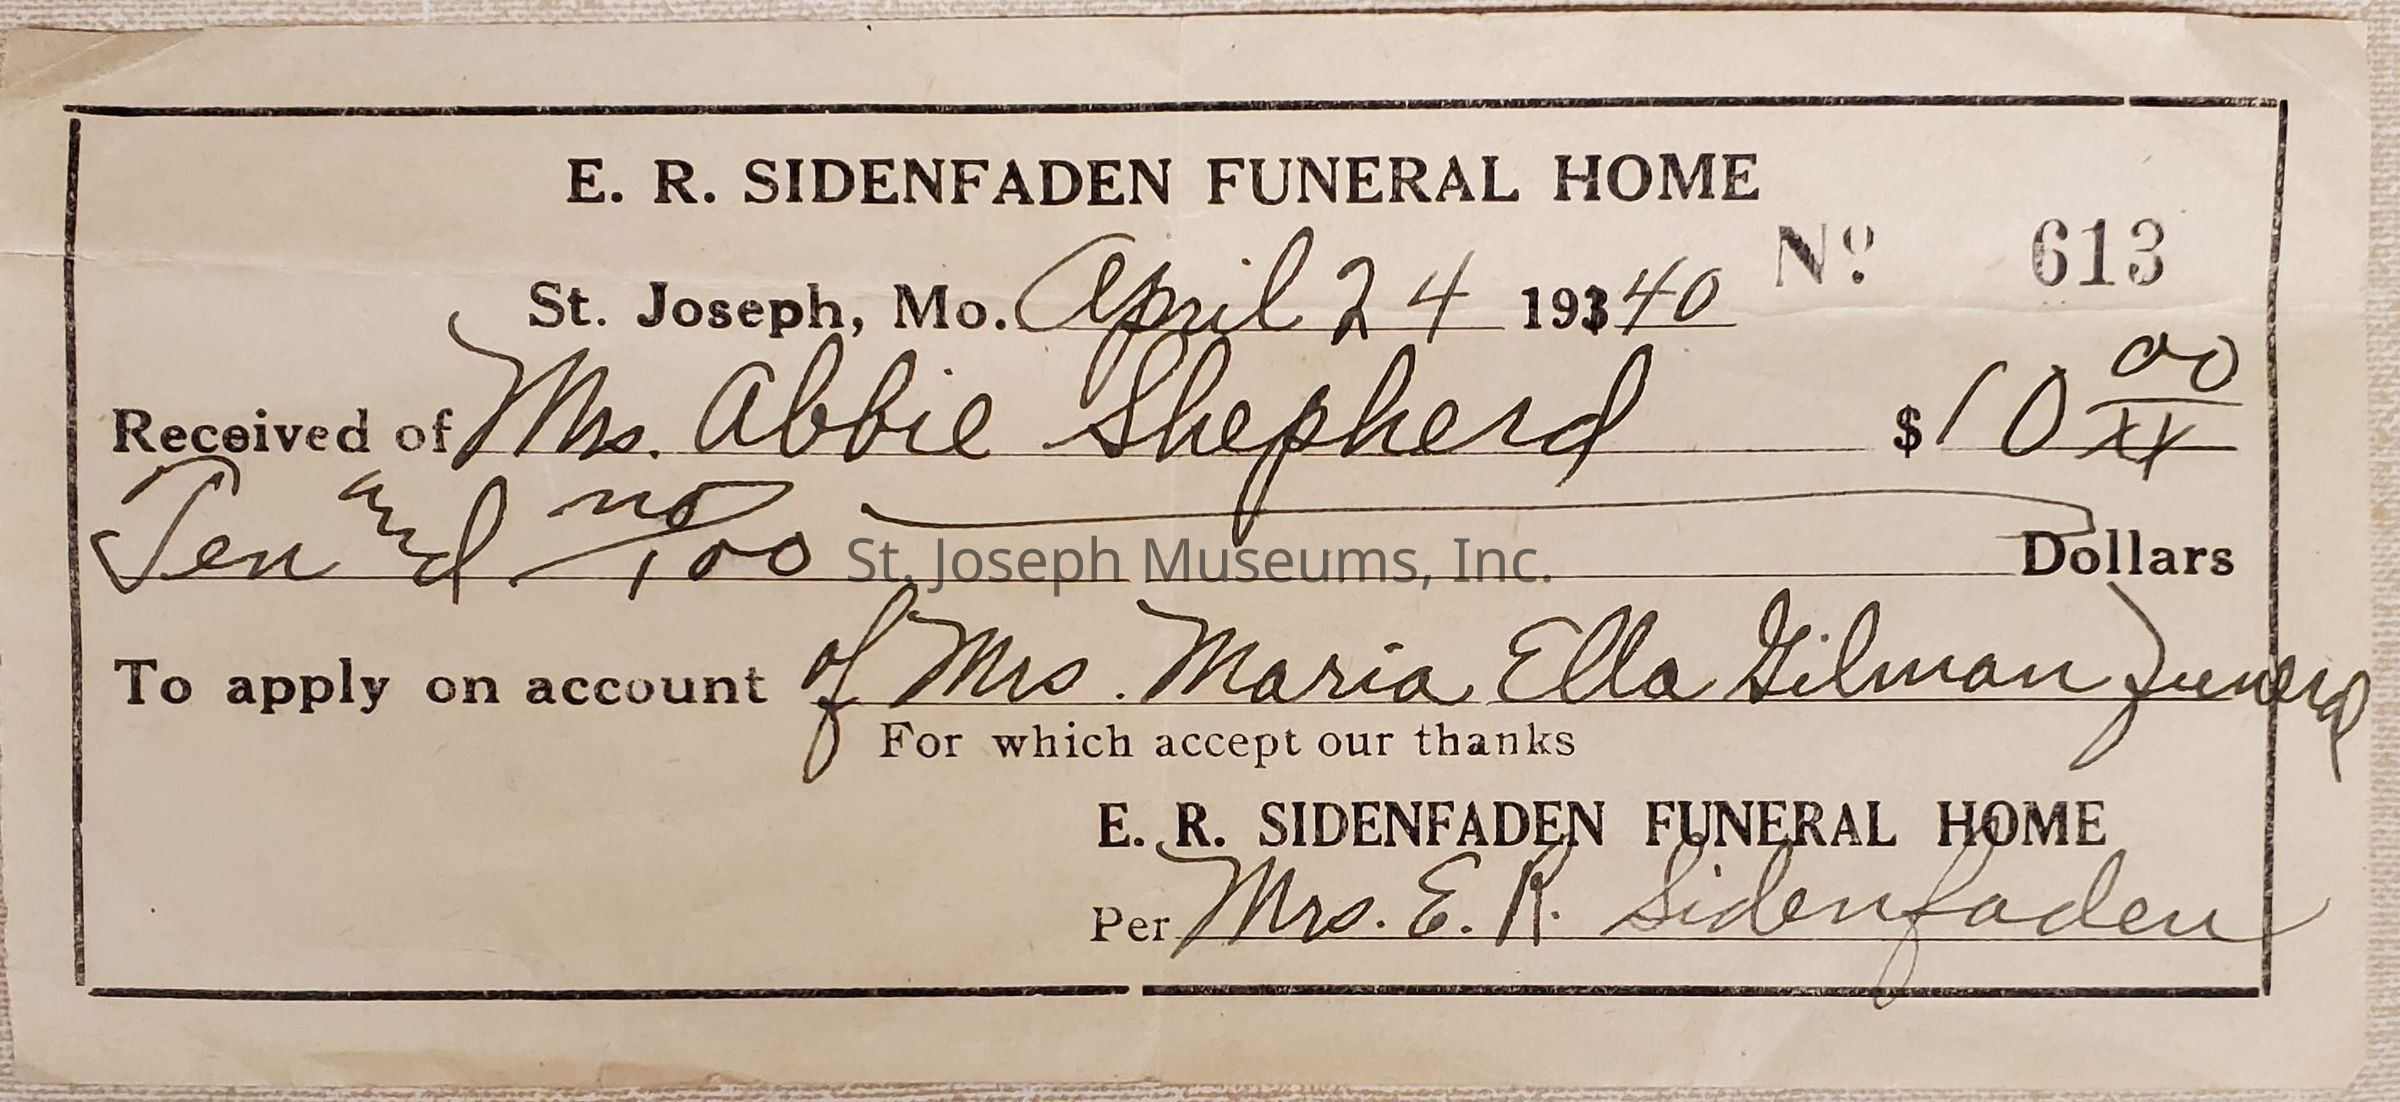 E. R. SIDENFADEN FUNERAL HOME
No 613
St. Joseph, Mo. April 24 193 40
Received of Mrs. Abbie Shepherd $10 00/xx
Ten and no/100 Dollars
St. Joseph Museums, Inc.
To apply on account of Mrs. Maria Ella Gilman Funeral
For which accept our thanks
E. R. SIDENFADEN FUNERAL HOME
Per Mrs. E. R. Sidenfaden